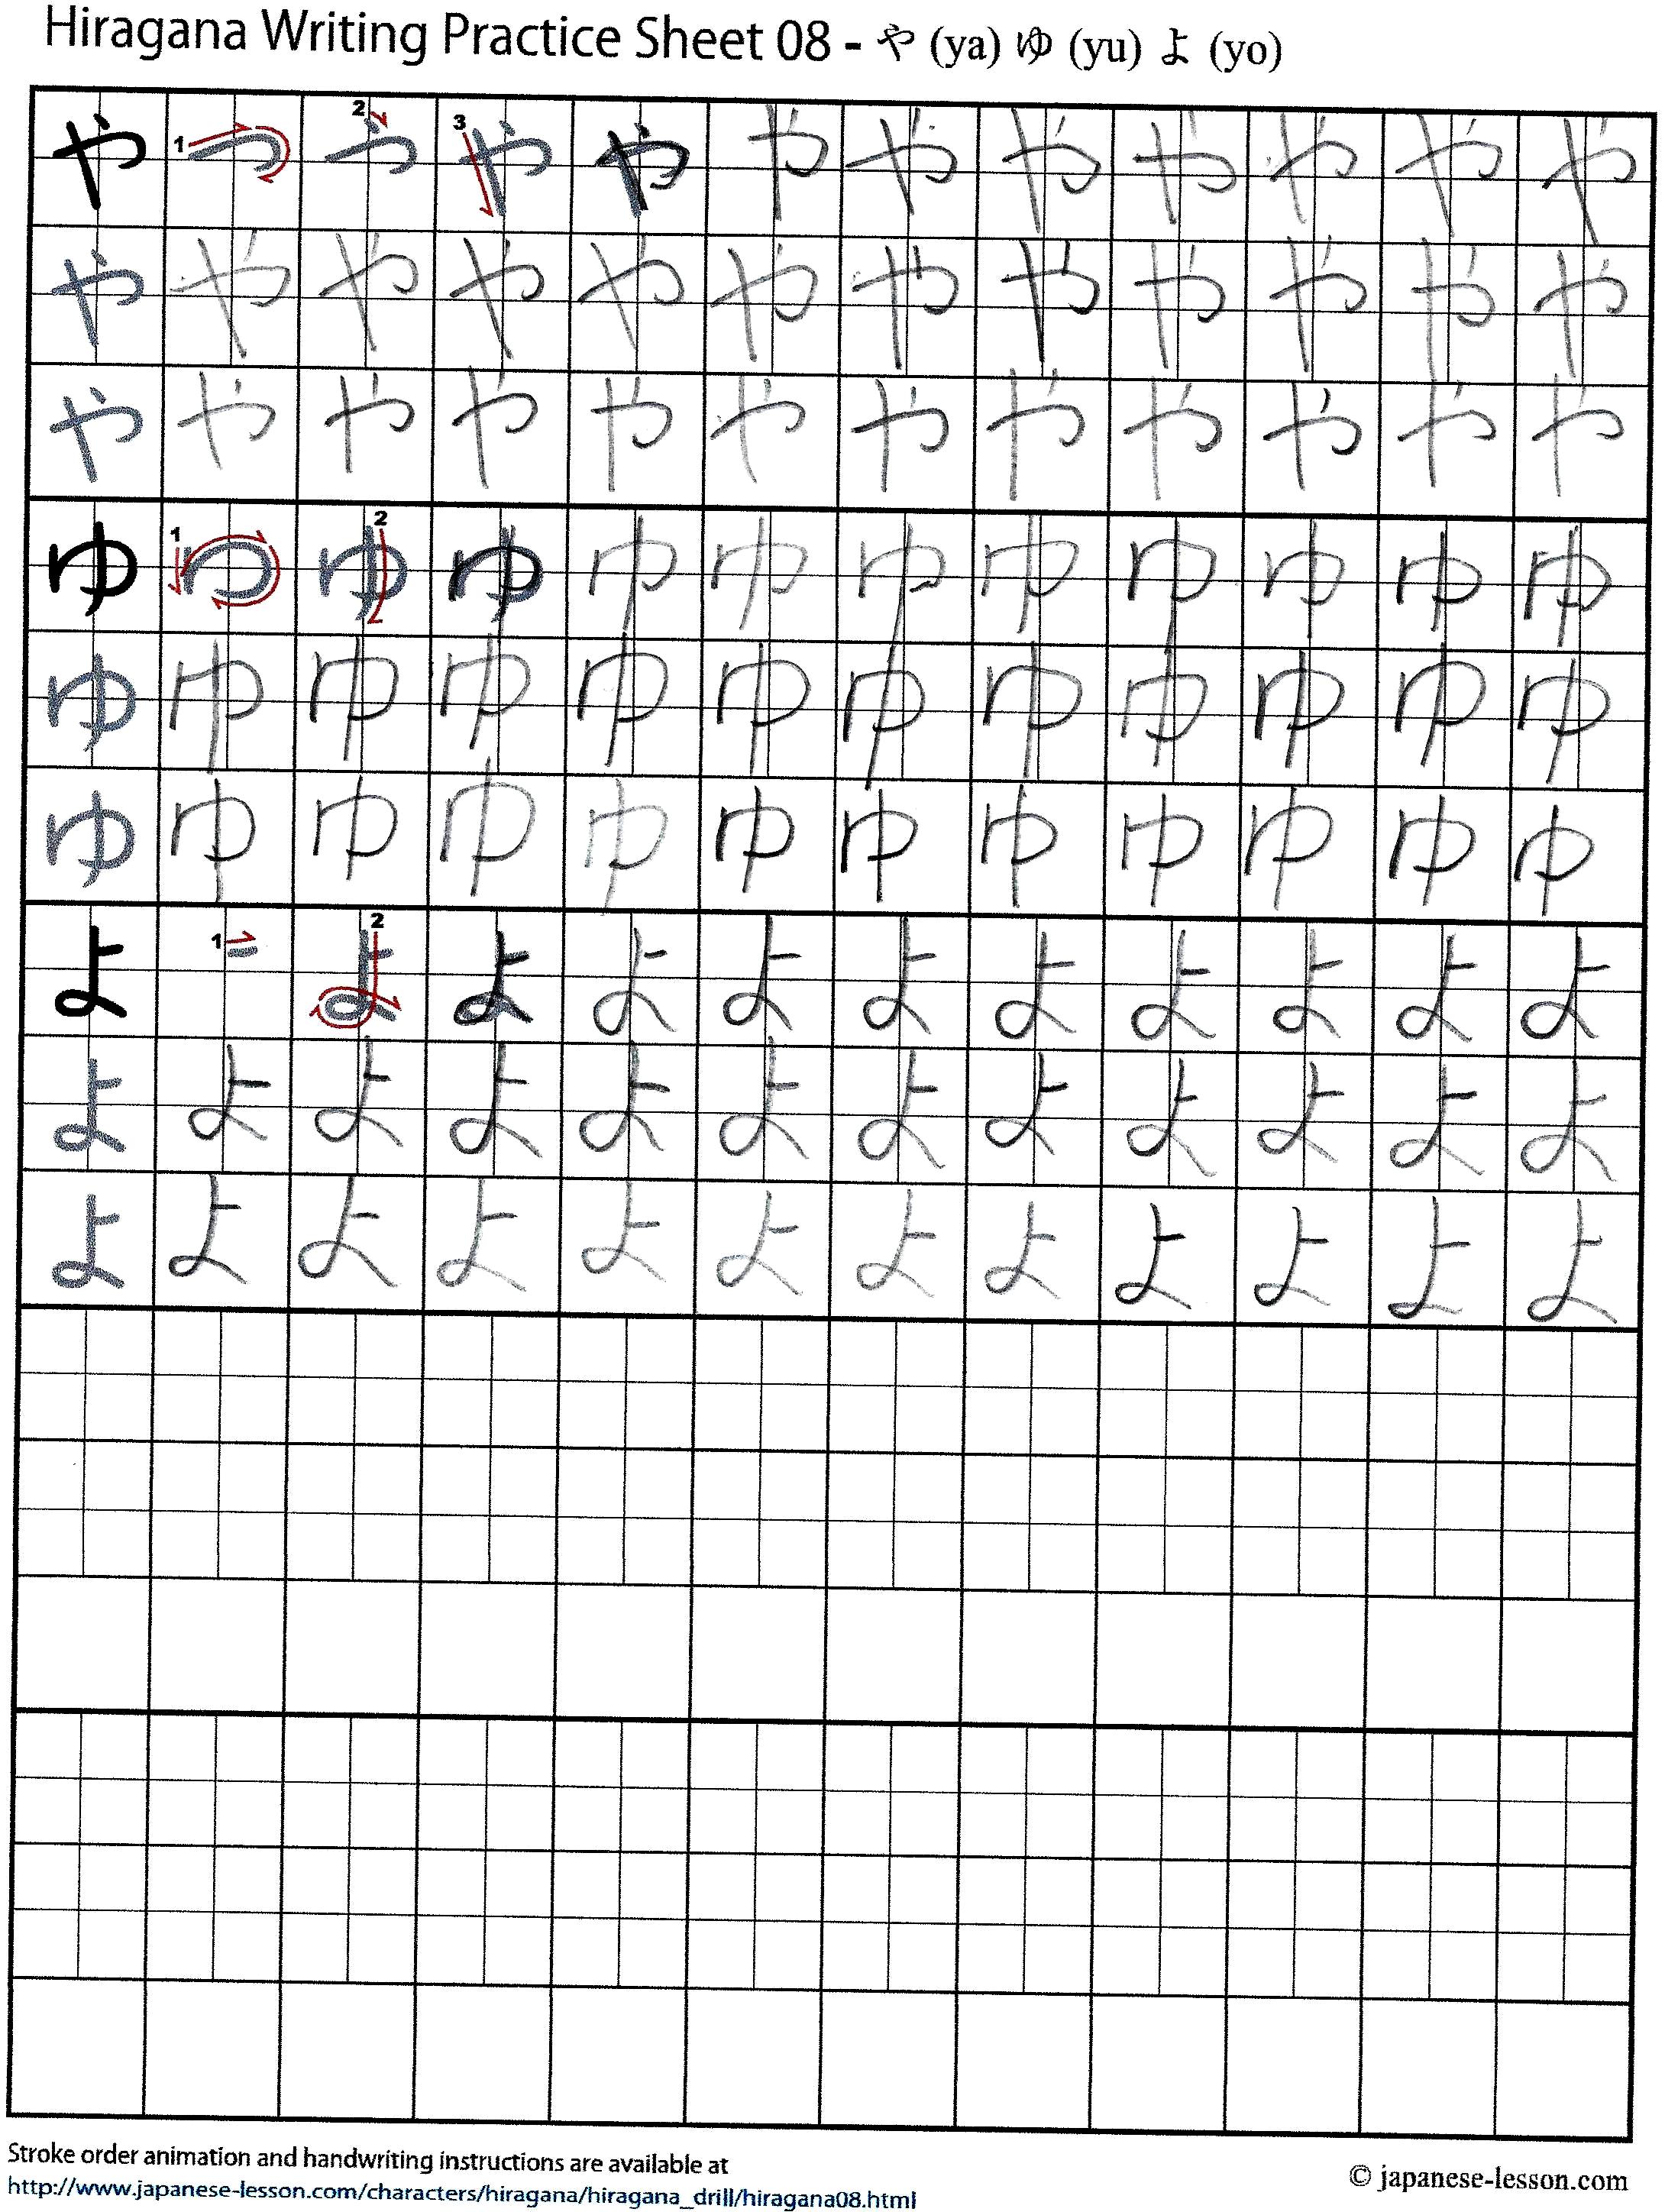 Hiragana Writing Practice Sheet 08 - や (ya) ゆ (yu) よ (yo)
や 1 2 3 や や や や や や や や や
や や や や や や や や や や や や
や や や や や や や や や や や や
ゆ 1 2 ゆ ゆ ゆ ゆ ゆ ゆ ゆ ゆ ゆ ゆ
ゆ ゆ ゆ ゆ ゆ ゆ ゆ ゆ ゆ ゆ ゆ ゆ
ゆ ゆ ゆ ゆ ゆ ゆ ゆ ゆ ゆ ゆ ゆ ゆ
よ 1 2 よ よ よ よ よ よ よ よ よ よ
よ よ よ よ よ よ よ よ よ よ よ よ
よ よ よ よ よ よ よ よ よ よ よ よ
Stroke order animation and handwriting instructions are available at
http://www.japanese-lesson.com/characters/hiragana/hiragana_drill/hiragana08.html
© japanese-lesson.com